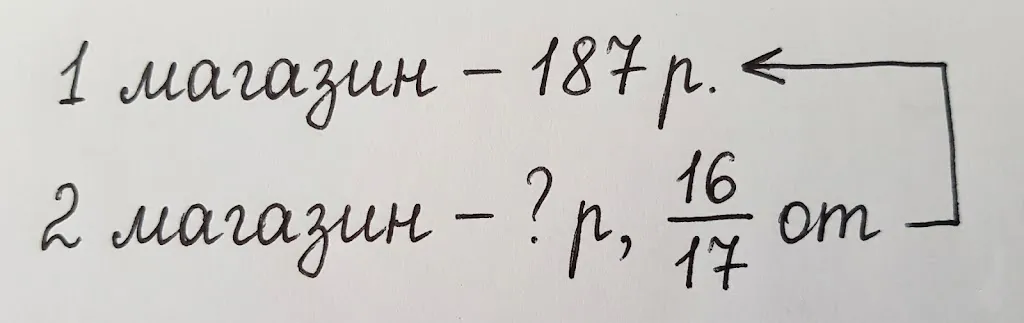 1 магазин – 187 р.
2 магазин – ? р, 16/17 от